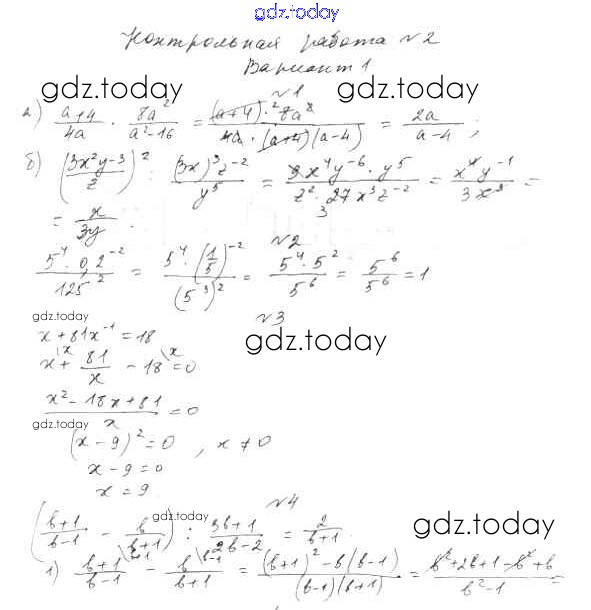 gdz.today
Контрольная работа №2
Вариант 1
gdz.today gdz.today
№1
а) (a+4)/(4a) · (8a²)/(a²-16) = ((a+4)·²8a²)/(4a·(a+4)(a-4)) = 2a/(a-4) ;
б) ((3x²y⁻³)/z)² : ((3x)³z⁻²)/y⁵ = (9x⁴y⁻⁶·y⁵)/(z²·27x³z⁻²) = (x⁴y⁻¹)/(3x³) =
= x/(3y) .
№2
(5⁴·0,2⁻²)/125² = (5⁴·(1/5)⁻²)/(5³)² = (5⁴·5²)/5⁶ = 5⁶/5⁶ = 1
gdz.today
№3
gdz.today
x+81x⁻¹=18
x + 81/x - 18 = 0
(x²-18x+81)/x = 0
gdz.today
(x-9)²=0 , x≠0
x-9=0
x=9.
№4
gdz.today gdz.today
((b+1)/(b-1) - b/(b+1)) : (3b+1)/(2b-2) = 2/(b+1) .
1) (b+1)/(b-1) - b/(b+1) = ((b+1)²-b(b-1))/((b-1)(b+1)) = (b²+2b+1-b²+b)/(b²-1) =